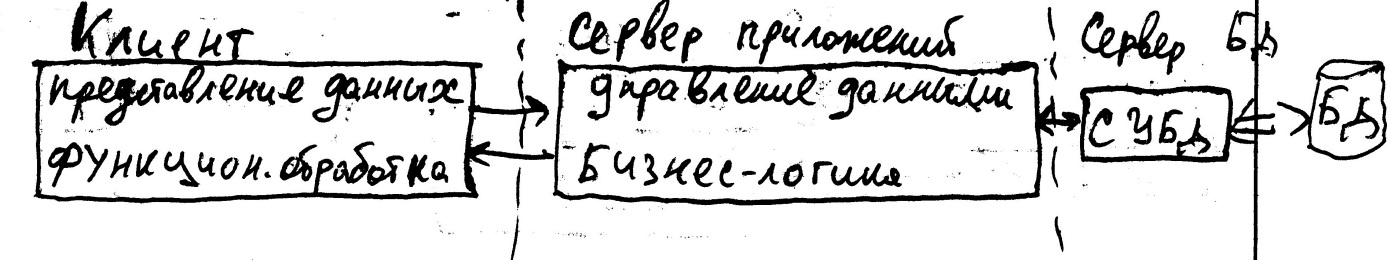 Клиент
представление данных
функцион. обработка
Сервер приложений
управление данными
Бизнес-логика
Сервер БД
СУБД
БД